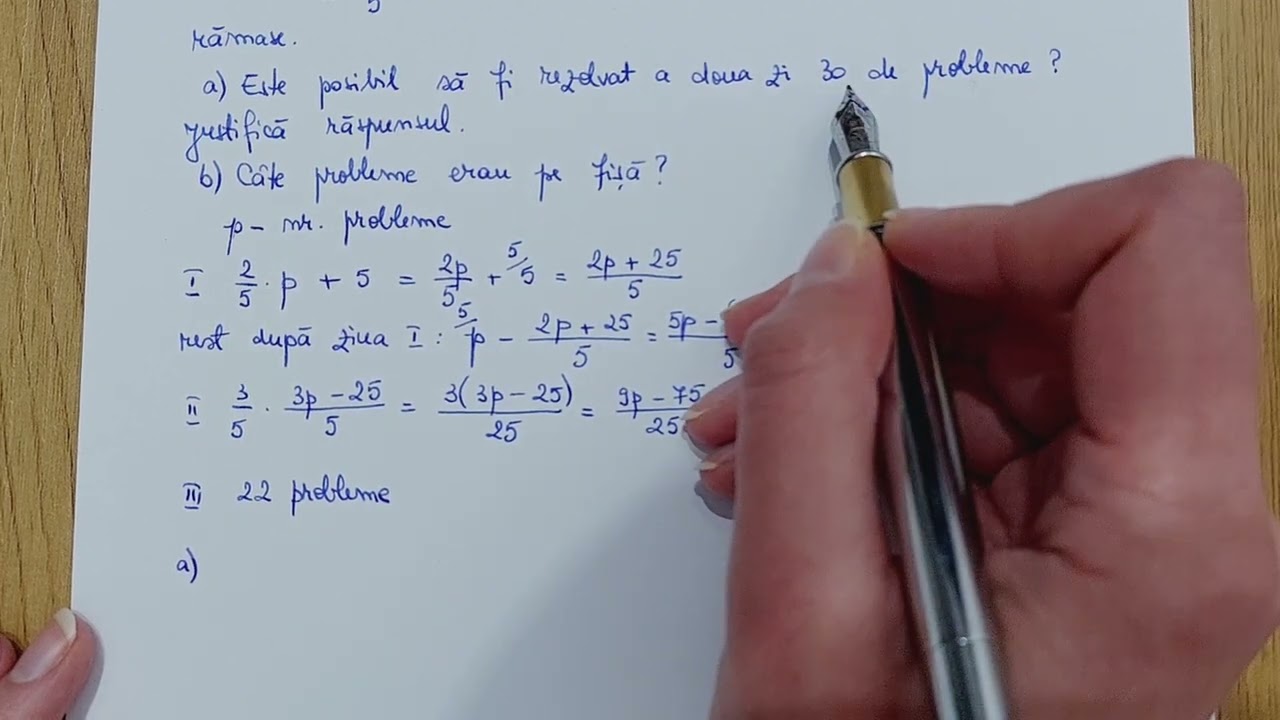 5
rămase.
a) Este posibil să fi rezolvat a doua zi 30 de probleme?
Justifică răspunsul.
b) Câte probleme erau pe fișă?
p - nr. probleme
I 2/5 · p + 5 = 2p/5 + 5/5 = (2p + 25)/5
rest după ziua I : 5/p - (2p + 25)/5 = 5p - /5
II 3/5 · (3p - 25)/5 = 3(3p - 25)/25 = (9p - 75)/25
III 22 probleme
a)